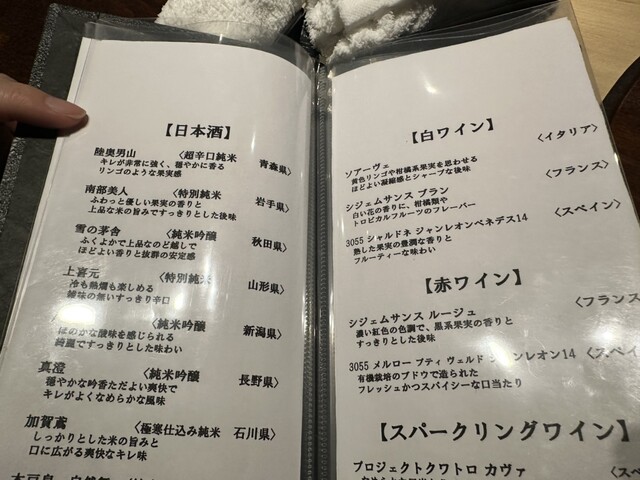 【日本酒】
陸奥男山 〈超辛口純米 青森県〉
キレが非常に強く、穏やかに香る
リンゴのような果実感
南部美人 〈特別純米 岩手県〉
ふわっと優しい果実の香りと
上品な米の旨みですっきりとした後味
雪の茅舎 〈純米吟醸 秋田県〉
ふくよかで上品なのど越しで
ほどよい香りと抜群の安定感
上喜元 〈特別純米 山形県〉
冷も熱燗も楽しめる
雑味の無いすっきり辛口
〈純米吟醸 新潟県〉
ほのかな酸味を感じられる
綺麗ですっきりとした味わい
真澄 〈純米吟醸 長野県〉
穏やかな吟香ただよい爽快で
キレがよくなめらかな風味
加賀鳶 〈極寒仕込み純米 石川県〉
しっかりとした米の旨みと
口に広がる爽快なキレ味
【白ワイン】
ソアーヴェ 〈イタリア〉
黄色リンゴや柑橘系果実を思わせる
ほどよい凝縮感とシャープな後味
シジェムサンス ブラン 〈フランス〉
白い花の香りに、柑橘類や
トロピカルフルーツのフレーバー
3055 シャルドネ ジャンレオンペネデス14 〈スペイン〉
熟した果実の豊潤な香りと
フルーティーな味わい
【赤ワイン】
シジェムサンス ルージュ 〈フランス
濃い紅色の色調で、黒系果実の香りと
すっきりとした後味
3055 メルロー プティ ヴェルド ジャンレオン14 〈スペイ
有機栽培のブドウで造られた
フレッシュかつスパイシーな口当たり
【スパークリングワイン】
プロジェクトクワトロ カヴァ 〈スペ